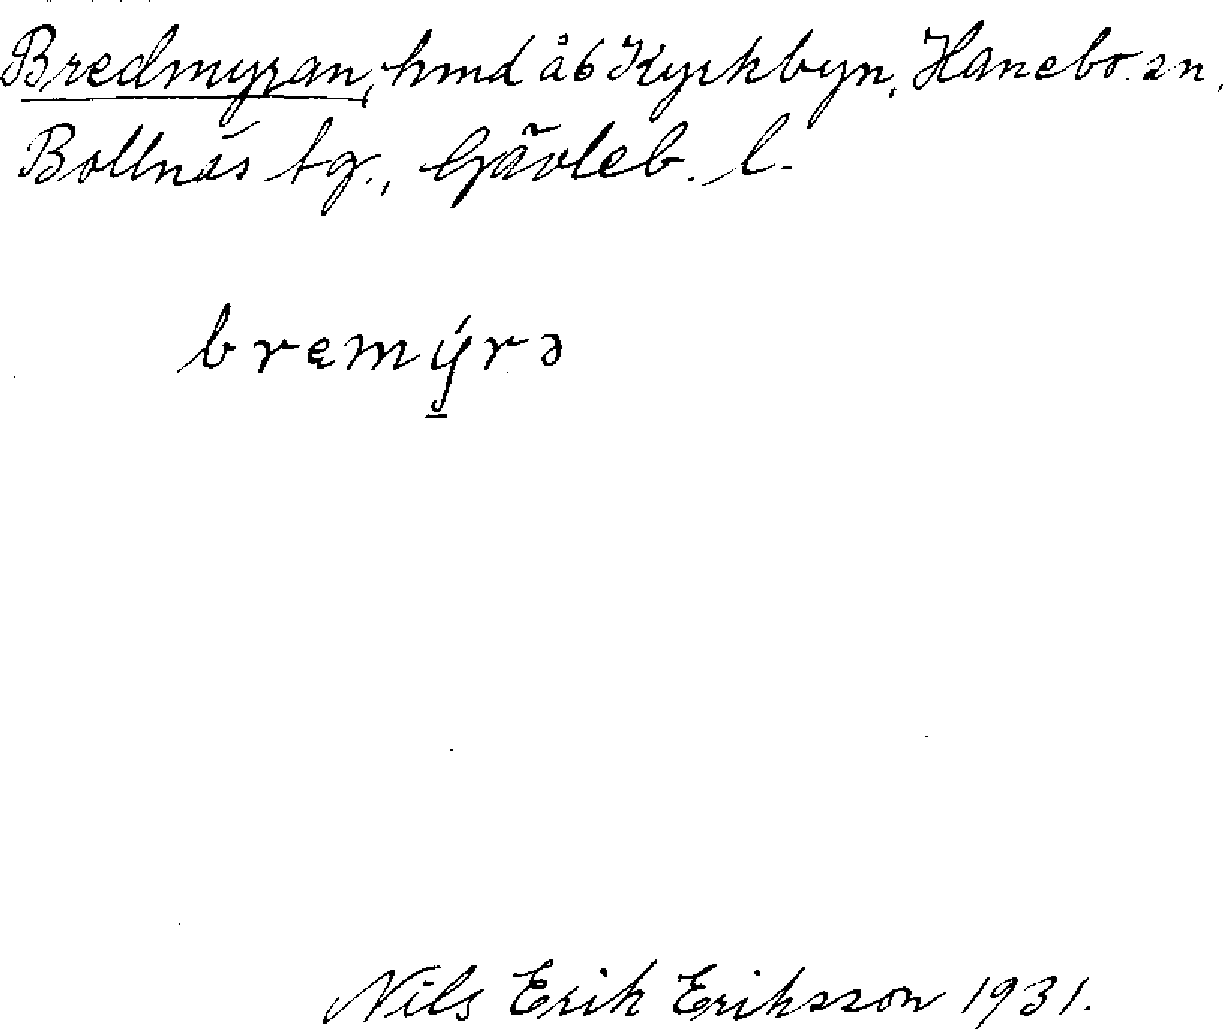 Bredmyran, hmd å 6 Kyrkbyn, Hanebo sn,
Bollnäs tg., Gävleb. l.
bręmýrə
Nils Erik Eriksson 1931.